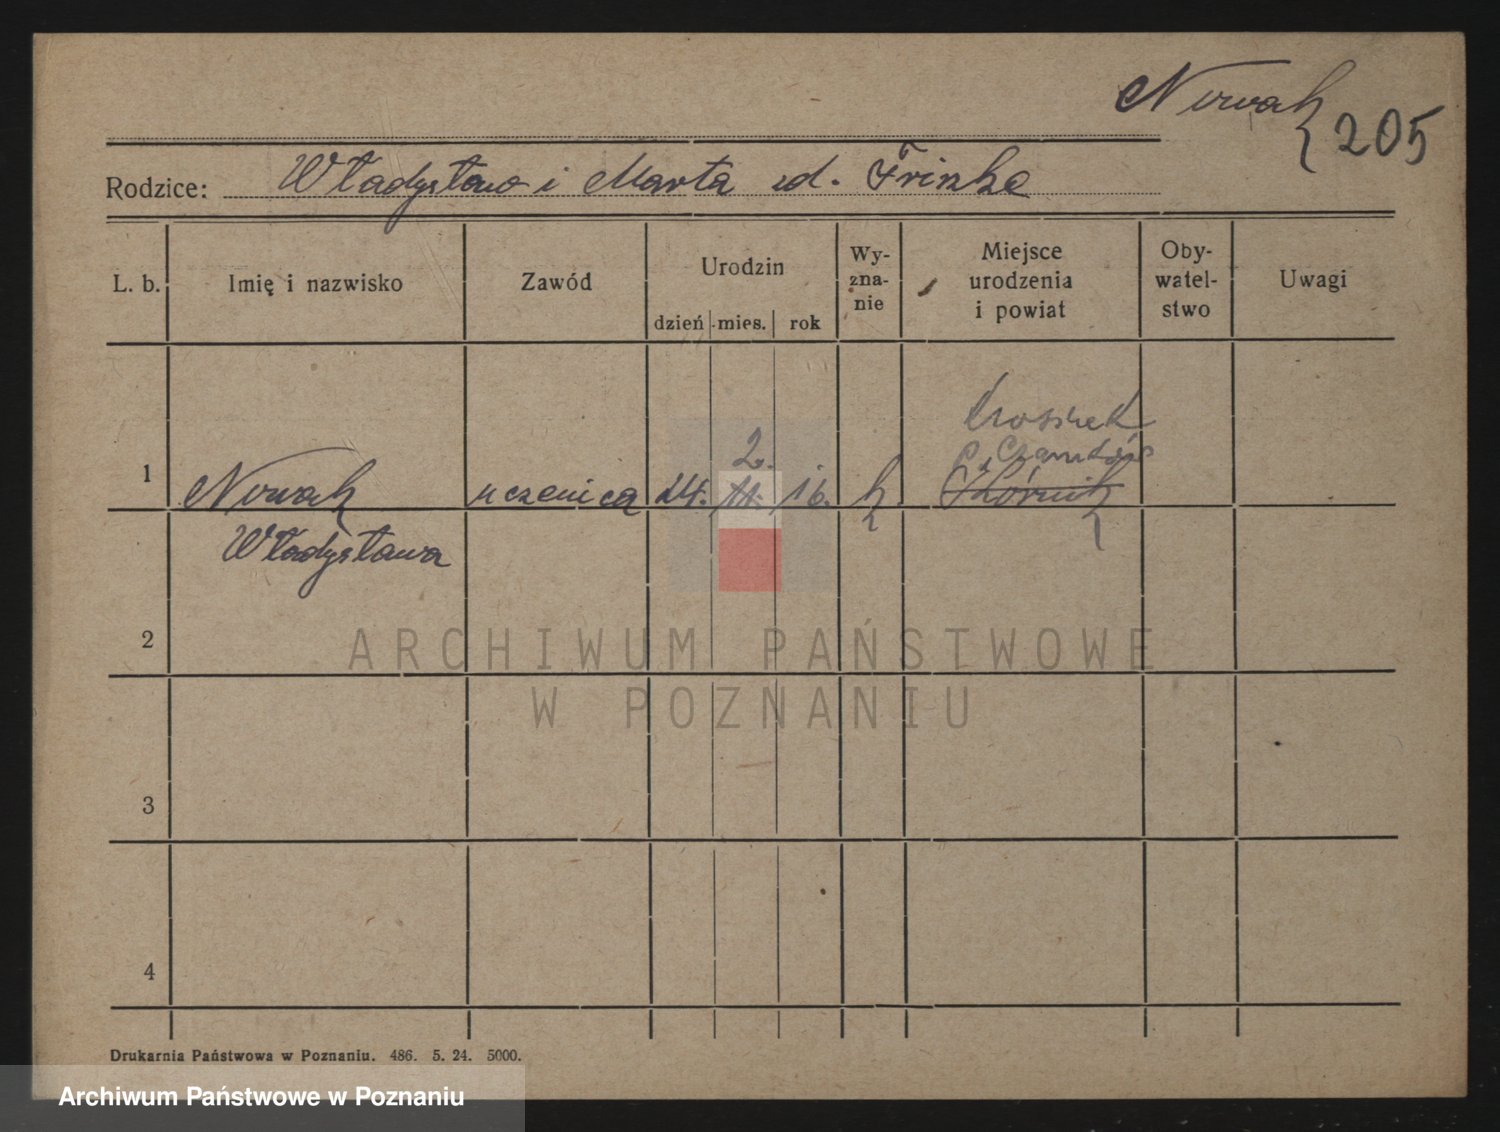 Nowak
205
Rodzice: Władysław i Marta zd. Frinke
L. b. Imię i nazwisko Zawód Urodzin dzień mies. rok Wy-zna-nie Miejsce urodzenia i powiat Oby-watel-stwo Uwagi
Krosinek
2. p. Czarnków
1 Nowak uczenica 24. 11. 16. k Kórnik
Władysława
2
ARCHIWUM PAŃSTWOWE
W POZNANIU
3
4
Drukarnia Państwowa w Poznaniu. 486. 5. 24. 5000.
Archiwum Państwowe w Poznaniu